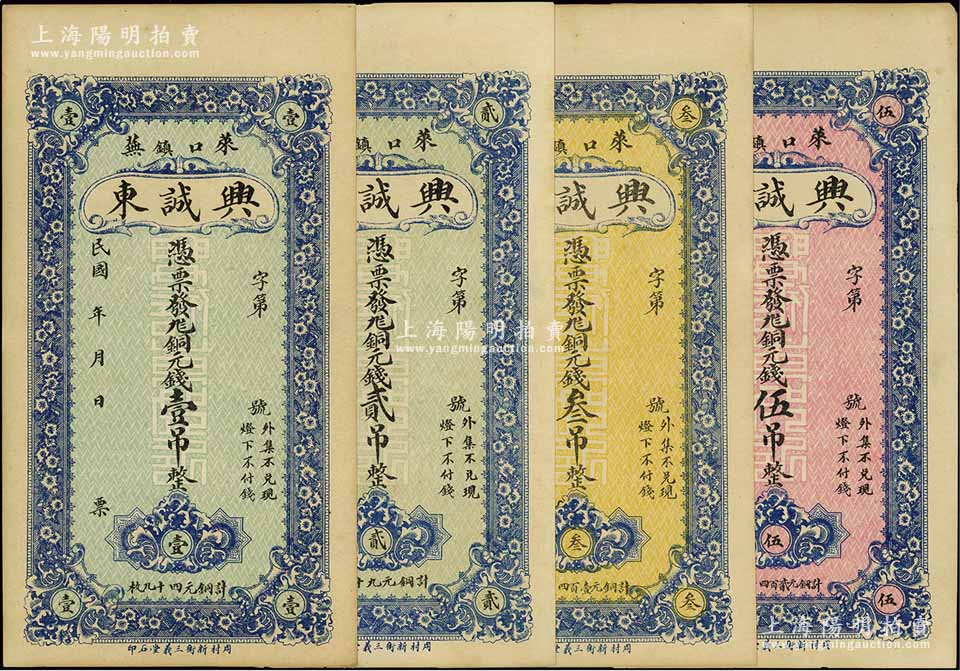 上海陽明拍賣
www.yangmingauction.com
壹 壹
萊蕪口鎮
興誠東
字第
號
外集不兌現
燈下不付錢
憑票發兌銅元錢壹吊整
民國 年 月 日 票
壹
計銅元四十九枚
壹 壹
周村新街三義堂石印
貳
萊口鎮
興誠
字第
號
外集不兌現
燈下不付錢
憑票發兌銅元錢貳吊整
貳
計銅元九十
貳
周村新街三義
叁
萊口鎮
興誠
字第
號
外集不兌現
燈下不付錢
憑票發兌銅元錢叁吊整
叁
計銅元壹百四
叁
周村新街三義
伍
萊口鎮
興誠
字第
號
外集不兌現
燈下不付錢
憑票發兌銅元錢伍吊整
伍
計銅元貳百四
伍
周村新街三義
上海陽明拍賣
www.yangmingauction.com
上海陽明拍賣
www.yangmingauction.com